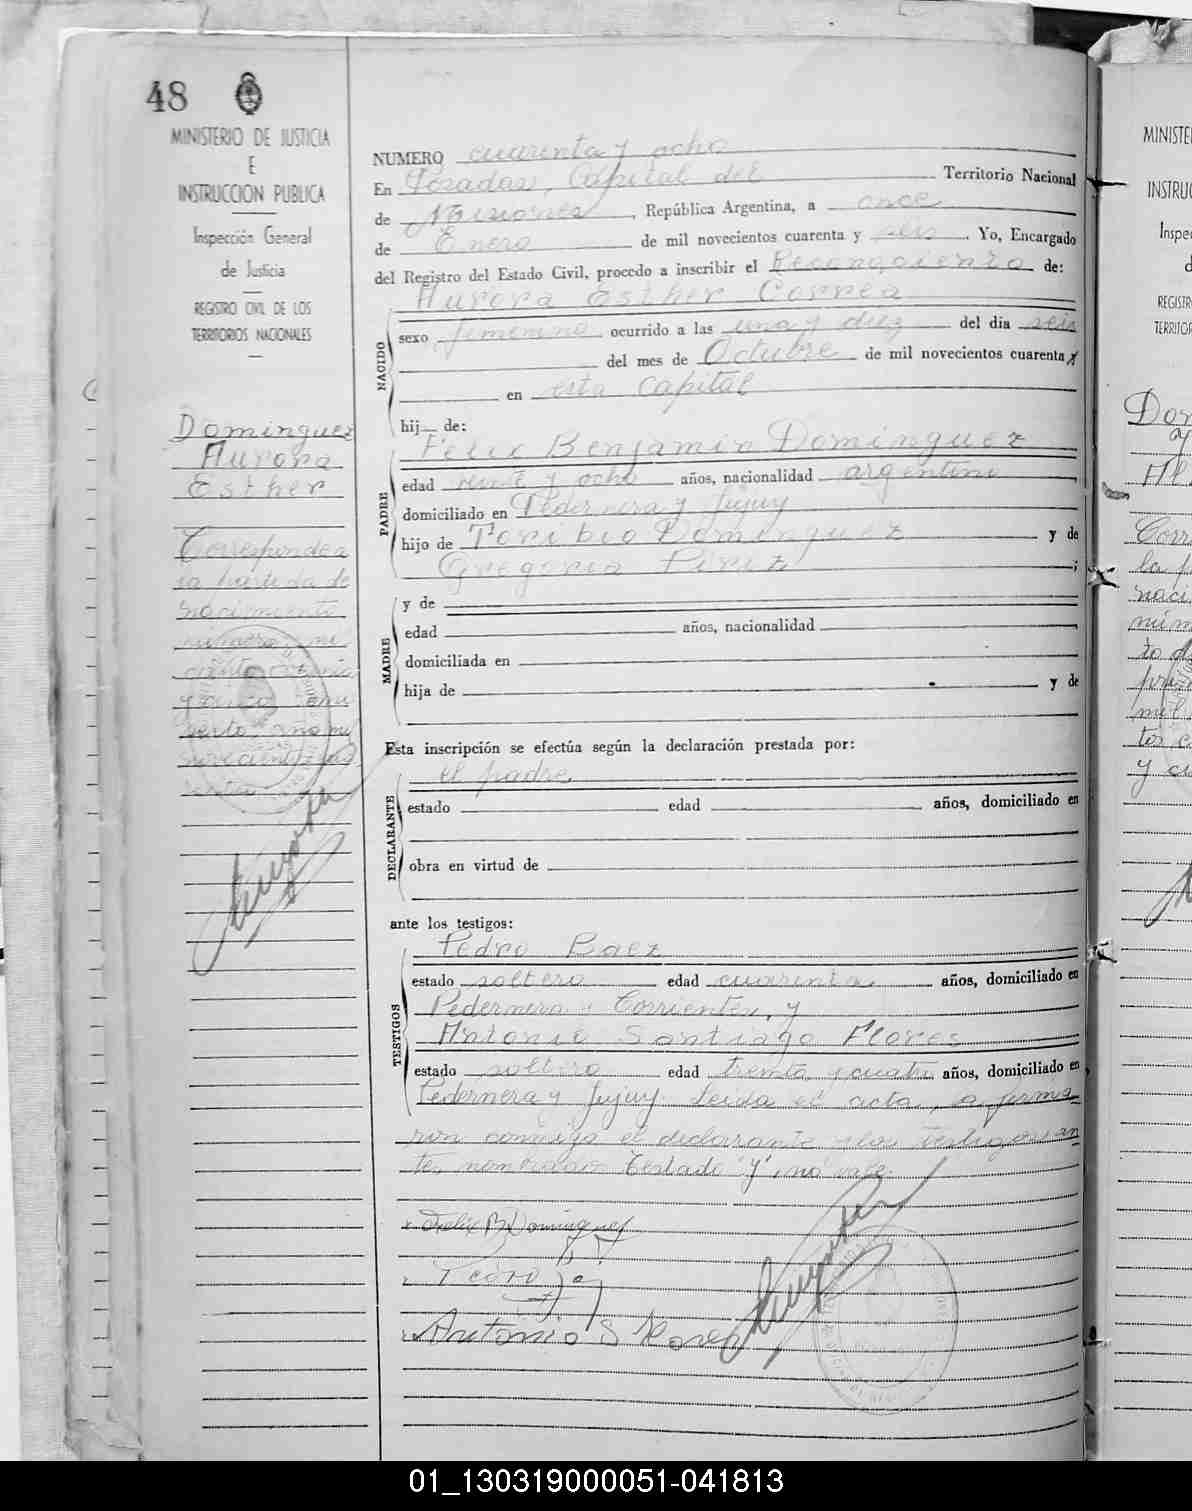 48
MINISTERIO DE JUSTICIA
E
INSTRUCCION PUBLICA
Inspección General
de Justicia
REGISTRO CIVIL DE LOS
TERRITORIOS NACIONALES
Dominguez
Aurora
Esther
Corresponde a
la partida de
nacimiento
número
NUMERO cuarenta y ocho
En Posadas, Capital del Territorio Nacional
de Misiones, República Argentina, a once
de Enero de mil novecientos cuarenta y seis. Yo, Encargado
del Registro del Estado Civil, procedo a inscribir el Reconocimiento de:
Aurora Esther Correa
NACIDO
sexo femenino ocurrido a las una y diez del dia seis
del mes de Octubre de mil novecientos cuarenta y
en esta Capital
hij de:
Felix Benjamin Dominguez
PADRE
edad veinte y ocho años, nacionalidad argentino
domiciliado en Pedernera y Jujuy
hijo de Toribio Dominguez y de
Gregoria Piriz ;
MADRE
y de
edad años, nacionalidad
domiciliada en
hija de y de
Esta inscripción se efectúa según la declaración prestada por:
el padre
DECLARANTE
estado edad años, domiciliado en
obra en virtud de
ante los testigos:
Pedro Baez
TESTIGOS
estado soltero edad cuarenta años, domiciliado en
Pedernera y Corrientes, y
Antonio Santiago Flores
estado soltero edad treinta y cuatro años, domiciliado en
Pedernera y Jujuy. Leida el acta, la firma
ron conmigo el declarante y los testigos an
tes nombrados Testado "y", no vale.
Felix B Dominguez
Pedro
Antonio S Flores
MINISTE
INSTRUC
Inspe
REGISTR
TERRITOR
01_130319000051-041813